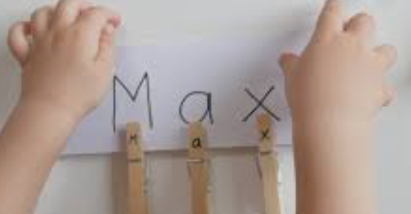 Max
M a x